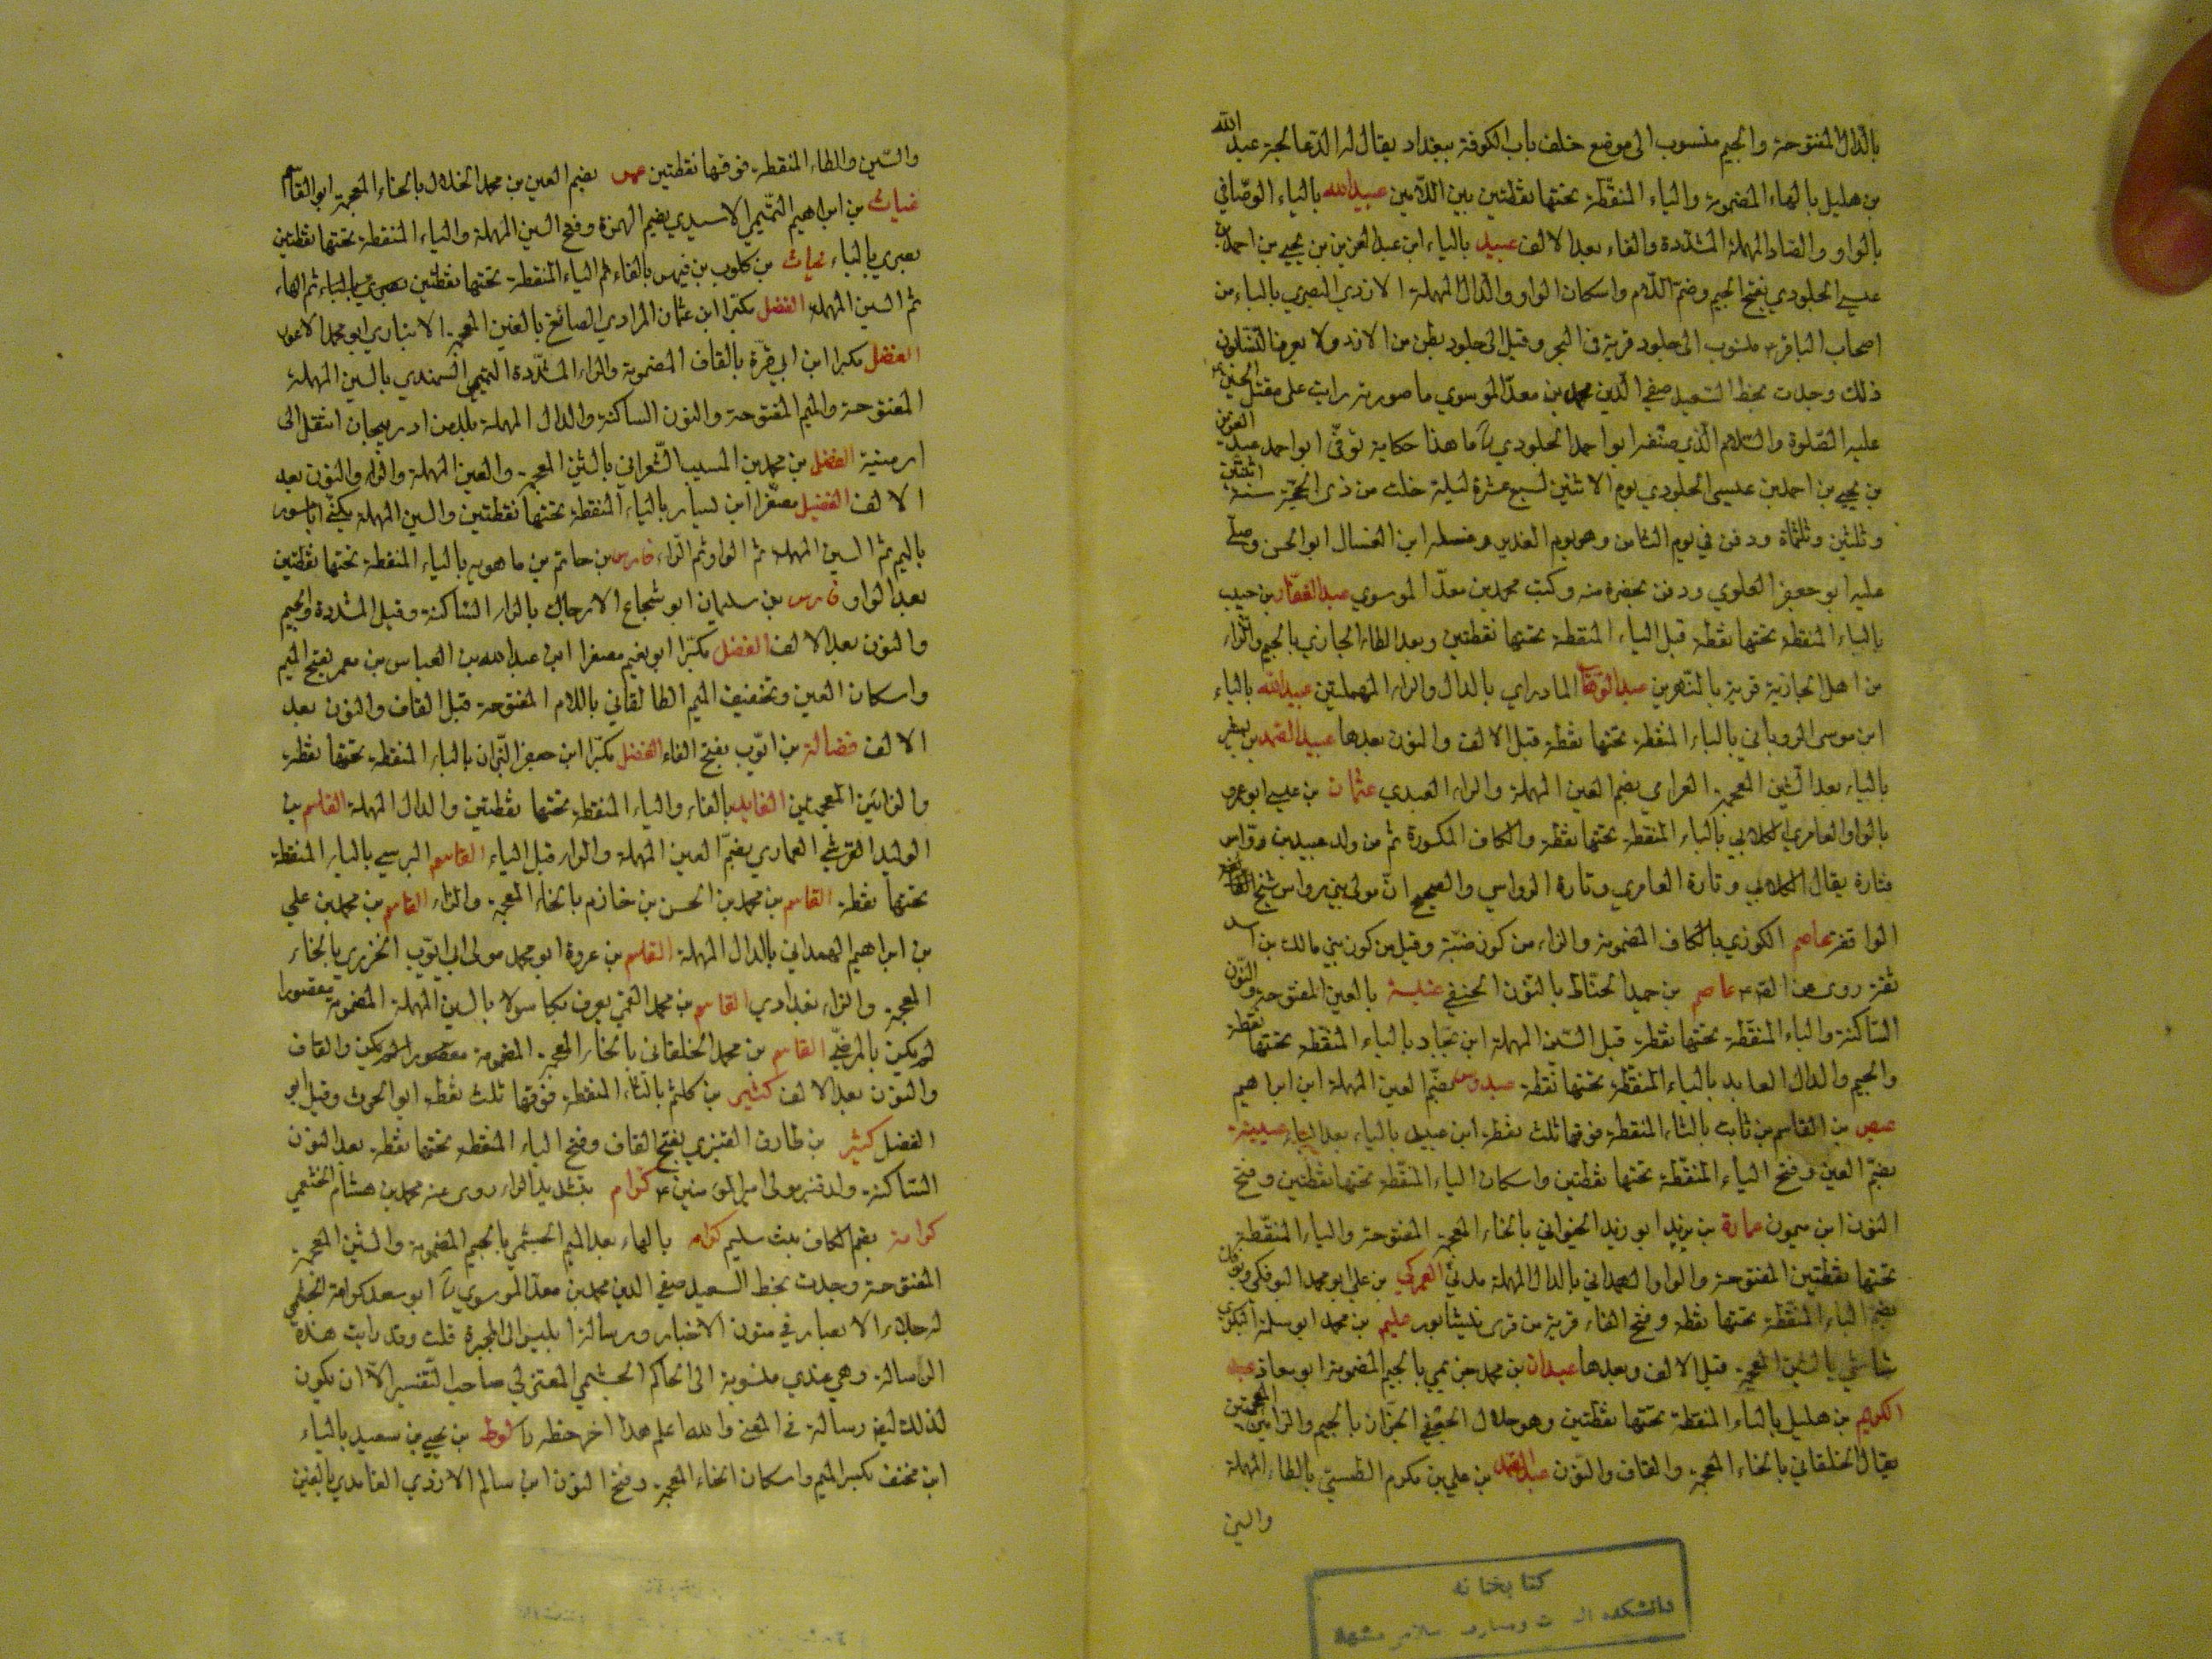 بالدال المفتوحة والجيم منسوب الى موضع خلف باب الكوفة ببغداد يقال له الدعالجة عبد الله
بن هليل بالهاء المضمومة والياء المنقطة تحتها نقطتين بين اللامين عبيد الله بالياء الوصافي
بالواو والصاد المهملة المشددة والفاء بعد الالف عبيد بالياء ابن عبد العزيز بن يحيى بن احمد بن
عيسى الجلودي بفتح الجيم وضم اللام واسكان الواو والدال المهملة الازدي البصري بالباء من
اصحاب الباقر ع منسوب الى جلود قرية في البحر وقيل الى جلود بطن من الازد ولا يعرف النسابون
ذلك وجدت بخط السعيد صفي الدين محمد بن معد الموسوي ما صورته رايت على مقتل الحسين
عليه الصلوة والسلام الذي صنفه ابو احمد الجلودي ما هذا حكاية توفي ابو احمد عبد العزيز
بن يحيى بن احمد بن عيسى الجلودي يوم الاثنين لسبع عشرة ليلة خلت من ذي الحجة سنة اثنتين
وثلثين وثلثماة ودفن في يوم الثامن وهو يوم الغدير وغسله ابن الغسال ابو الحسن وصلى
عليه ابو جعفر العلوي ودفن بحضرة منه وكتب محمد بن معد الموسوي عبد الغفار بن حبيب
بالباء المنقطة تحتها نقطة قبل الياء المنقطة تحتها نقطتين وبعد الطاء الجازي بالجيم والزاء
من اهل الجازية قرية بالنهرين عبد الوهاب المادراي بالدال والراء المهملتين عبيد الله بالياء
ابن موسى الروياني بالباء المنقطة تحتها نقطة قبل الالف والنون بعدها عبيد الصمد بن بشير
بالياء بعد الشين المعجمة العرامي بضم العين المهملة والراء العبدي عثمان بن عيسى ابو عمرو
بالواو العامري الكلابي بالباء المنقطة تحتها نقطة والكاف المكسورة ثم من ولد عبيد بن رواس
فتارة يقال الكلابي وتارة العامري وتارة الرواسي والصحيح ان مولى بني رواس شيخ
الواقفة عاصم الكوزي بالكاف المضمومة والزاء من كوز ضبة وقيل من كوز بني مالك بن اسد
ثقة روى عن الصادق ع عاصم بن حميد الحناط بالنون الحنفي عنبسة بالعين المفتوحة والنون
الساكنة والباء المنقطة تحتها نقطة قبل السين المهملة ابن بجاد بالباء المنقطة تحتها نقطة
والجيم والدال العابد بالباء المنقطة تحتها نقطة عبدوس بضم العين المهملة ابن ابراهيم
عيص بن القاسم بن ثابت بالثاء المنقطة فوقها ثلث نقطة ابن عبيد بالياء بعد الباء عيينة
بضم العين وفتح الياء المنقطة تحتها نقطتين واسكان الياء المنقطة تحتها نقطتين وفتح
النون ابن ميمون عمارة بن يزيد ابو زيد الخيواني بالخاء المعجمة المفتوحة والياء المنقطة
تحتها نقطتين المفتوحة والواو الهمداني بالدال المهملة مدني العمركي بن علي ابو محمد البوفكي وبوفك
بضم الباء المنقطة تحتها نقطة وفتح الفاء قرية من قرى نيشابور عليم بن محمد ابو سلمة البكري
شاشي بالشين المعجمة قبل الالف وبعدها عبدان بن محمد جويمي بالجيم المضمومة ابو معاذ عبد
الكريم بن هليل بالياء المنقطة تحتها نقطتين وهو هلال الجعفي الجزاز بالجيم والزايين المعجمتين
يقال الخلقاني بالخاء المعجمة والقاف والنون عبد الصمد بن علي بن مكرم الطستي بالطاء المهملة
والسين
والسين والطاء المنقطة فوقها نقطتين عمر بضم العين بن محمد الخلال بالخاء المعجمة ابو القاسم
غياث بن ابراهيم التميمي الاسيدي بضم الهمزة وفتح السين المهملة والياء المنقطة تحتها نقطتين
بصري بالباء غياث بن كلوب بن فيهس بالفاء ثم الياء المنقطة تحتها نقطتين بصري بالباء ثم الهاء
ثم السين المهملة الفضل مكبرا ابن عثمان المرادي الصائغ بالغين المعجمة الانباري ابو محمد الاعور
الفضل مكبرا ابن ابي قرة بالقاف المضمومة والراء المشددة التميمي السمندي بالسين المهملة
المفتوحة والميم المفتوحة والنون الساكنة والدال المهملة بلد من ادربيجان انتقل الى
ارمنية الفضل بن محمد بن المسيب الشعراني بالشين المعجمة والعين المهملة والراء والنون بعد
الالف الفضيل مصغرا ابن يسار بالياء المنقطة تحتها نقطتين والسين المهملة يكنى ابا مسور
بالميم ثم السين المهملة ثم الواو ثم الراء فارس بن حاتم بن ماهويه بالياء المنقطة تحتها نقطتين
بعد الواو فارس بن سليمان ابو شجاع الارجاني بالراء الساكنة وقيل المشددة والجيم
والنون بعد الالف الفضل مكبرا ابو نعيم مصغرا ابن عبد الله بن العباس بن معمر بفتح الميم
واسكان العين وتخفيف الميم الطالقاني باللام المفتوحة قبل القاف والنون بعد
الالف فضالة بن ايوب بفتح الفاء الفضل مكبرا ابن جعفر البزاز بالباء المنقطة تحتها نقطة
والزايين المعجمتين الفايد بالفاء والياء المنقطة تحتها نقطتين والدال المهملة القاسم بن
الوليد القرشي العماري بضم العين المهملة والراء قبل الياء القاسم البرسي بالباء المنقطة
تحتها نقطة القاسم بن محمد بن الحسن بن خازم بالخاء المعجمة والزاء القاسم بن محمد بن علي
بن ابراهيم الهمداني بالدال المهملة القاسم بن عروة ابو محمد مولى ابي ايوب الخوزي بالخاء
المعجمة والزاء بغدادي القاسم بن محمد القمي يعرف بكاسولا بالسين المهملة المضمومة مقصورا
لم يكن بالمرضي القاسم بن محمد الخلقاني بالخاء المعجمة المضمومة والقاف
والنون بعد الالف كثير بن كلثم بالثاء المنقطة فوقها ثلث نقطة ابو الحرث وقيل ابو
الفضل كثير بن طارق القنبري بفتح القاف وفتح الباء المنقطة تحتها نقطة بعد النون
الساكنة ولد قنبر مولى امير المؤمنين ع كرام بتشديد الراء روى عنه محمد بن هشام الخثعمي
كرامة بضم الكاف بنت سليم كرامه بالهاء بعد الميم الجشمي بالجيم المضمومة والشين المعجمة
المفتوحة وجدت بخط السعيد صفي الدين محمد بن معد الموسوي ابو سعد كرامة الجشمي
له جلاء الابصار في متون الاخبار ورسالة ابليس الى المجبرة قلت وقد رايت هذه
الرسالة وهي عندي منسوبة الى الحاكم الجشمي المعتزلي صاحب التفسير الا ان يكون
لذلك ايضا رسالة في المعنى والله اعلم هذا اخر خطه لوط بن يحيى بن سعيد بالياء
ابن مخنف بكسر الميم واسكان الخاء المعجمة وفتح النون ابن سالم الازدي الغامدي بالغين
كتابخانه
دانشكده